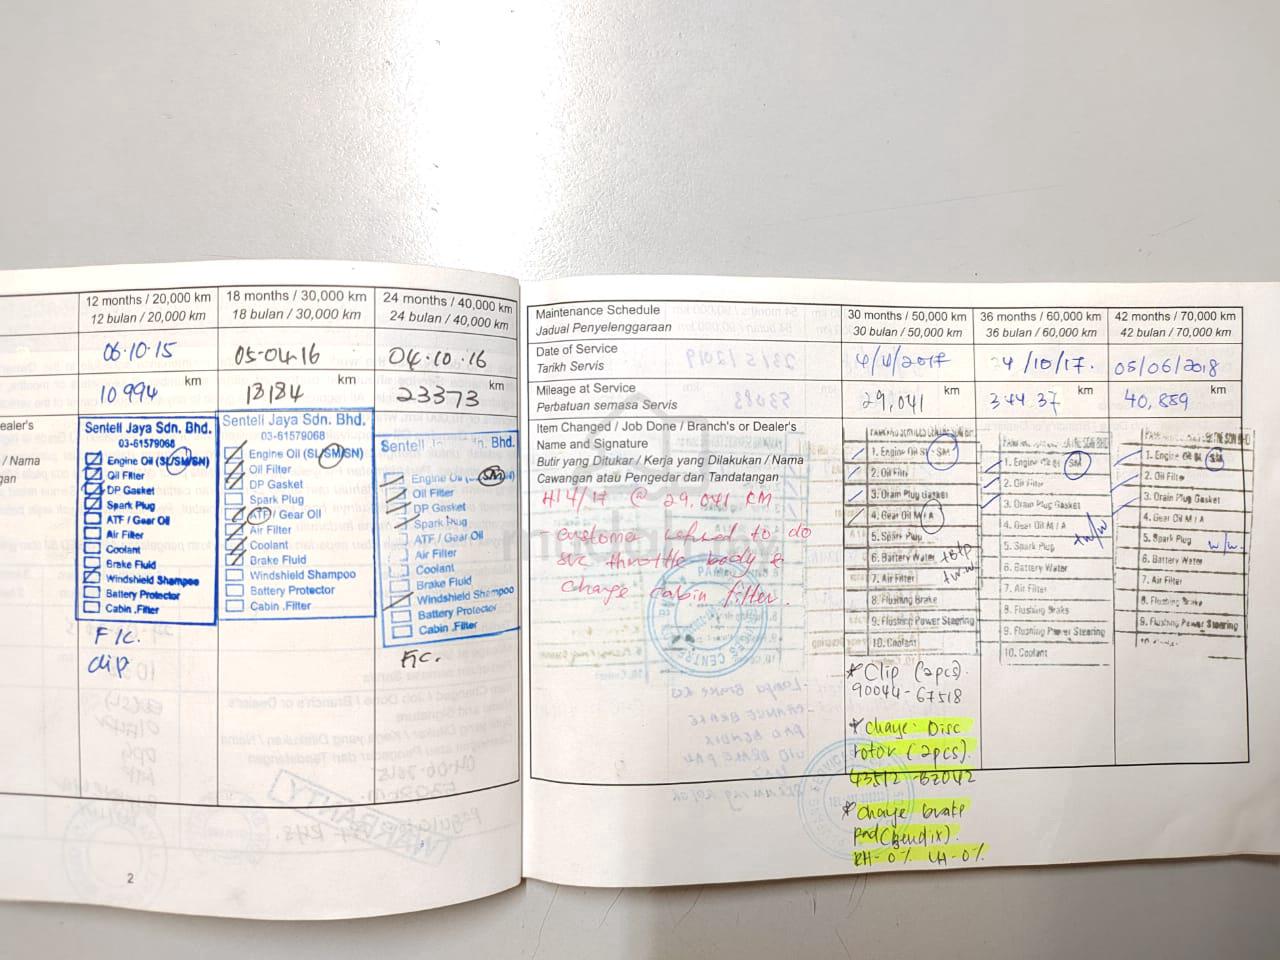 12 months / 20,000 km
12 bulan / 20,000 km
06.10.15
10994 km
Sentell Jaya Sdn. Bhd.
03-61579068
Engine Oil (SL/SM/SN)
Oil Filter
DP Gasket
Spark Plug
ATF / Gear Oil
Air Filter
Coolant
Brake Fluid
Windshield Shampoo
Battery Protector
Cabin .Filter
F/C.
clip
18 months / 30,000 km
18 bulan / 30,000 km
05-04.16
km
Sentell Jaya Sdn. Bhd.
03-61579068
Engine Oil (SL/SM/SN)
Oil Filter
DP Gasket
Spark Plug
ATF / Gear Oil
Air Filter
Coolant
Brake Fluid
Windshield Shampoo
Battery Protector
Cabin .Filter
24 months / 40,000 km
24 bulan / 40,000 km
04.10.16
23373 km
Sentell Jdn. Bhd.
Engine Oil (SM)
Oil Filter
DP Gasket
Spark Plug
ATF / Gear Oil
Air Filter
Coolant
Brake Fluid
Windshield Shampoo
Battery Protector
Cabin .Filter
F/C.
ealer's
/ Nama
gan
2
Maintenance Schedule
Jadual Penyelenggaraan
30 months / 50,000 km
30 bulan / 50,000 km
36 months / 60,000 km
36 bulan / 60,000 km
42 months / 70,000 km
42 bulan / 70,000 km
Date of Service
Tarikh Servis
4/4/2017
4/10/17.
05/06/2018
Mileage at Service
Perbatuan semasa Servis
29,041 km
34437 km
40,889 km
Item Changed / Job Done / Branch's or Dealer's
Name and Signature
Butir yang Ditukar / Kerja yang Dilakukan / Nama
Cawangan atau Pengedar dan Tandatangan
@ 29,041 KM
customer refused to do
svc throttle body &
change cabin filter.
1. Engine Oil SM
2. Oil Filter
3. Drain Plug Gasket
4. Gear Oil M / A
5. Spark Plug
6. Battery Water
7. Air Filter
8. Flushing Brake
9. Flushing Power Steering
10. Coolant
* Clip (2pcs).
90044-67518
* Change Disc
rotor (2pcs).
* change brake
pad (bendix).
RH-0% LH-0%
1. Engine Oil SM
2. Oil Filter
3. Drain Plug Gasket
4. Gear Oil M / A
5. Spark Plug
6. Battery Water
7. Air Filter
8. Flushing Brake
9. Flushing Power Steering
10. Coolant
1. Engine Oil SM
2. Oil Filter
3. Drain Plug Gasket
4. Gear Oil M / A
5. Spark Plug
6. Battery Water
7. Air Filter
8. Flushing Brake
9. Flushing Power Steering
10.
w/w.